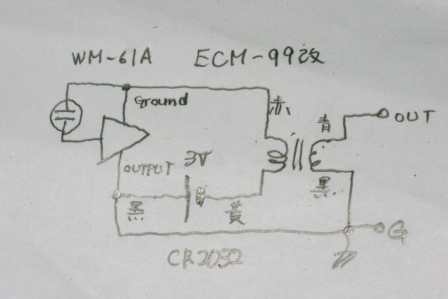 WM-61A ECM-99改
Ground
赤
青
OUT
OUTPUT
3V
黒
黄
黒
G
CR2032